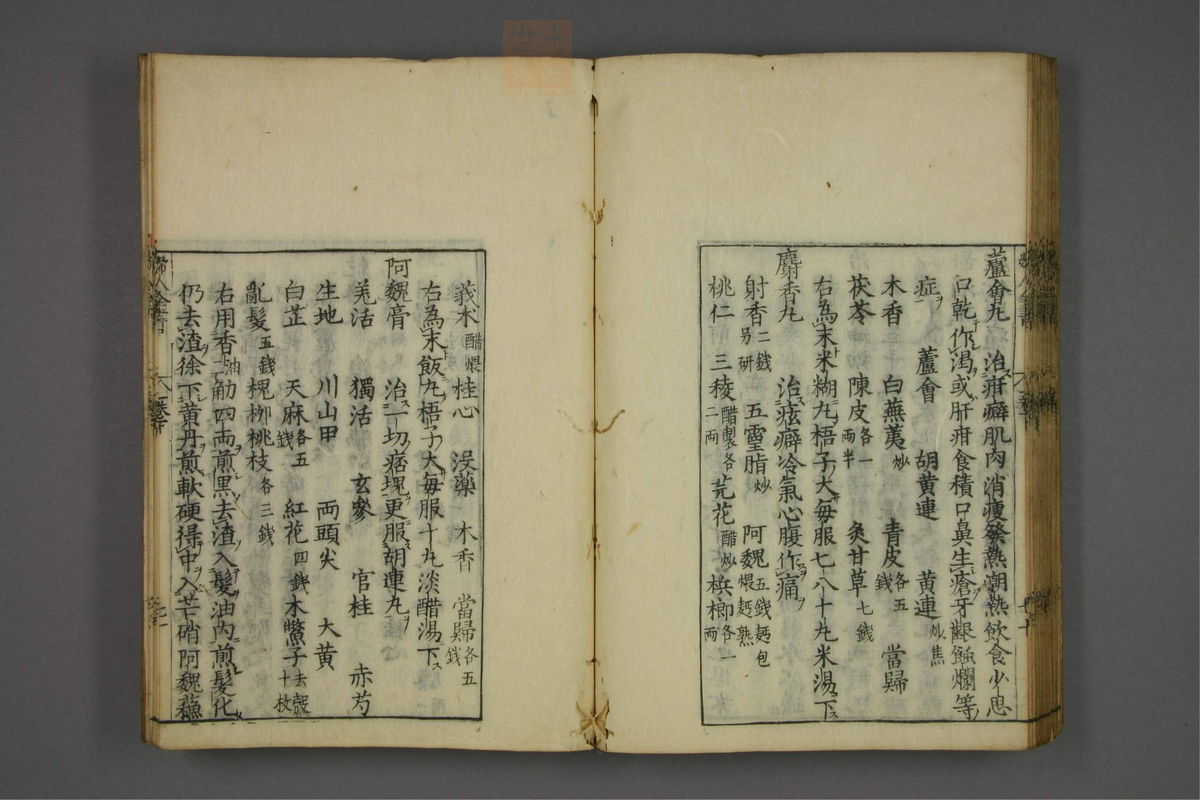 蘆會丸 治疳癖肌肉消瘦發熱潮熱飲食少思
口乾作渴或肝疳食積口鼻生瘡牙齦蝕爛等
症 蘆會 胡黄連 黄連炒焦
木香 白蕪荑炒 青皮各五錢 當歸
茯苓 陳皮各一両半 炙甘草七錢
右為末米糊丸梧子大毎服七八十丸米湯下
麝香丸 治痃癖冷氣心腹作痛
射香二錢另研 五霊脂炒 阿魏五錢麵包煨麵熟
桃仁 三稜醋製各二両 芫花醋炒 梹榔各一両
莪朮醋煨 桂心 没薬 木香 當歸各五錢
右為末飯丸梧子大毎服十丸淡醋湯下
阿魏膏 治一切痞塊更服胡連丸
羌活 獨活 玄參 官桂 赤芍
生地 川山甲 両頭尖 大黄
白芷 天麻各五錢 紅花四錢 木鱉子去殼十枚
亂髪五錢 槐柳桃枝各三錢
右用香油二觔四両煎黒去渣入髪油内煎髪化
仍去渣徐下黄丹煎軟硬得中入芒硝阿魏蘓